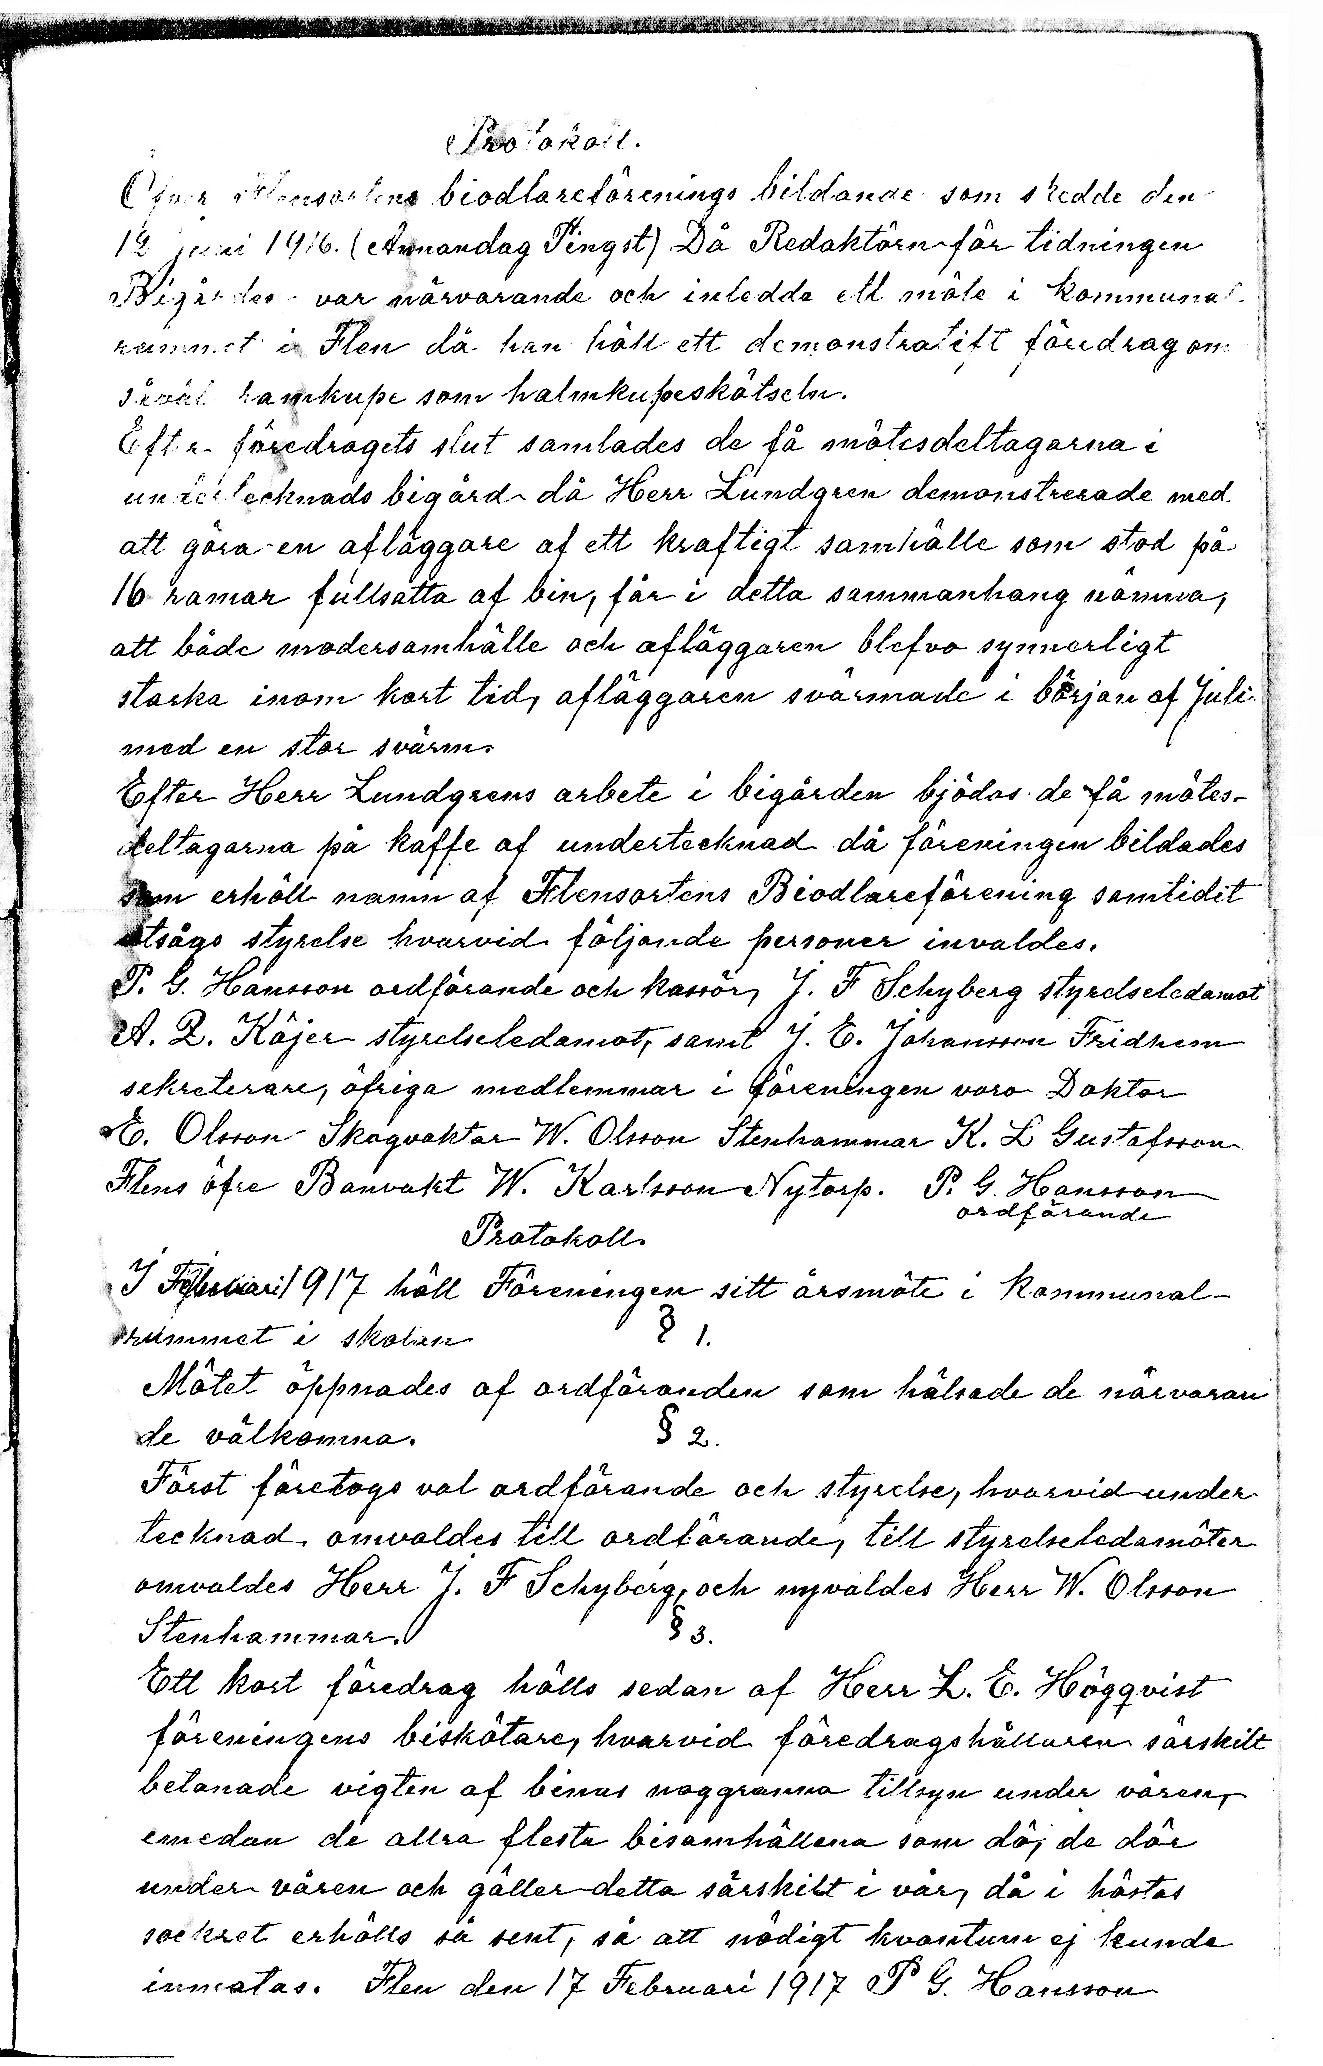 Protokoll.
Öfver Flensortens biodlareförenings bildande som skedde den
12 juni 1916. (Annandag Pingst) Då Redaktörn för tidningen
Bigården var närvarande och inledde ett möte i kommunal-
rummet i Flen då han höll ett demonstratift föredrag om
såväl ramkupe som halmkupeskötseln.
Efter föredragets slut samlades de få mötesdeltagarna i
undertecknads bigård då Herr Lundgren demonstrerade med
att göra en afläggare af ett kraftigt samhälle som stod på
16 ramar fullsatta af bin, får i detta sammanhang nämna,
att både modersamhälle och afläggaren blefvo synnerligt
starka inom kort tid, afläggaren svärmade i början af Juli
med en stor svärm.
Efter Herr Lundgrens arbete i bigården bjödos de få mötes-
deltagarna på kaffe af undertecknad då föreningen bildades
som erhöll namn af Flensortens Biodlareförening samtidit
utsågs styrelse hvarvid följande personer invaldes.
P. G. Hansson ordförande och kassör, J. F Schyberg styrelseledamot
A. R. Köjer styrelseledamot, samt J. E. Johansson Fridhem
sekreterare, öfriga medlemmar i föreningen voro Doktor
E. Olsson Skogvaktar W. Olsson Stenhammar K. L Gustafsson
Flens öfre Banvakt W. Karlsson Nytorp. P. G. Hansson
ordförande
Protokoll.
I Februari 1917 höll Föreningen sitt årsmöte i Kommunal-
rummet i skolan § 1.
Mötet öppnades af ordföranden som hälsade de närvaran
de välkomna. § 2.
Först företogs val ordförande och styrelse, hvarvid under
tecknad omvaldes till ordförande, till styrelseledamöter
omvaldes Herr J. F Schyberg, och nyvaldes Herr W. Olsson
Stenhammar. § 3.
Ett kort föredrag hölls sedan af Herr L. E. Högqvist
föreningens biskötare, hvarvid föredragshållaren särskilt
betonade vigten af binas noggranna tillsyn under våren,
emedan de allra flesta bisamhällena som dö, de dör
under våren och gäller detta särskilt i vår, då i höstas
sockret erhölls så sent, så att nödigt kvantum ej kunde
inmatas. Flen den 17 Februari 1917 P G. Hansson